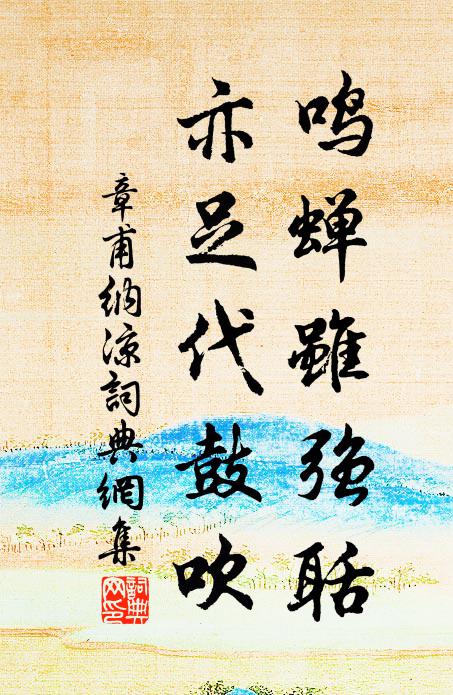 鸣蝉雖强聒
亦足代鼓吹
章甫納凉詞典網集
詞典網印